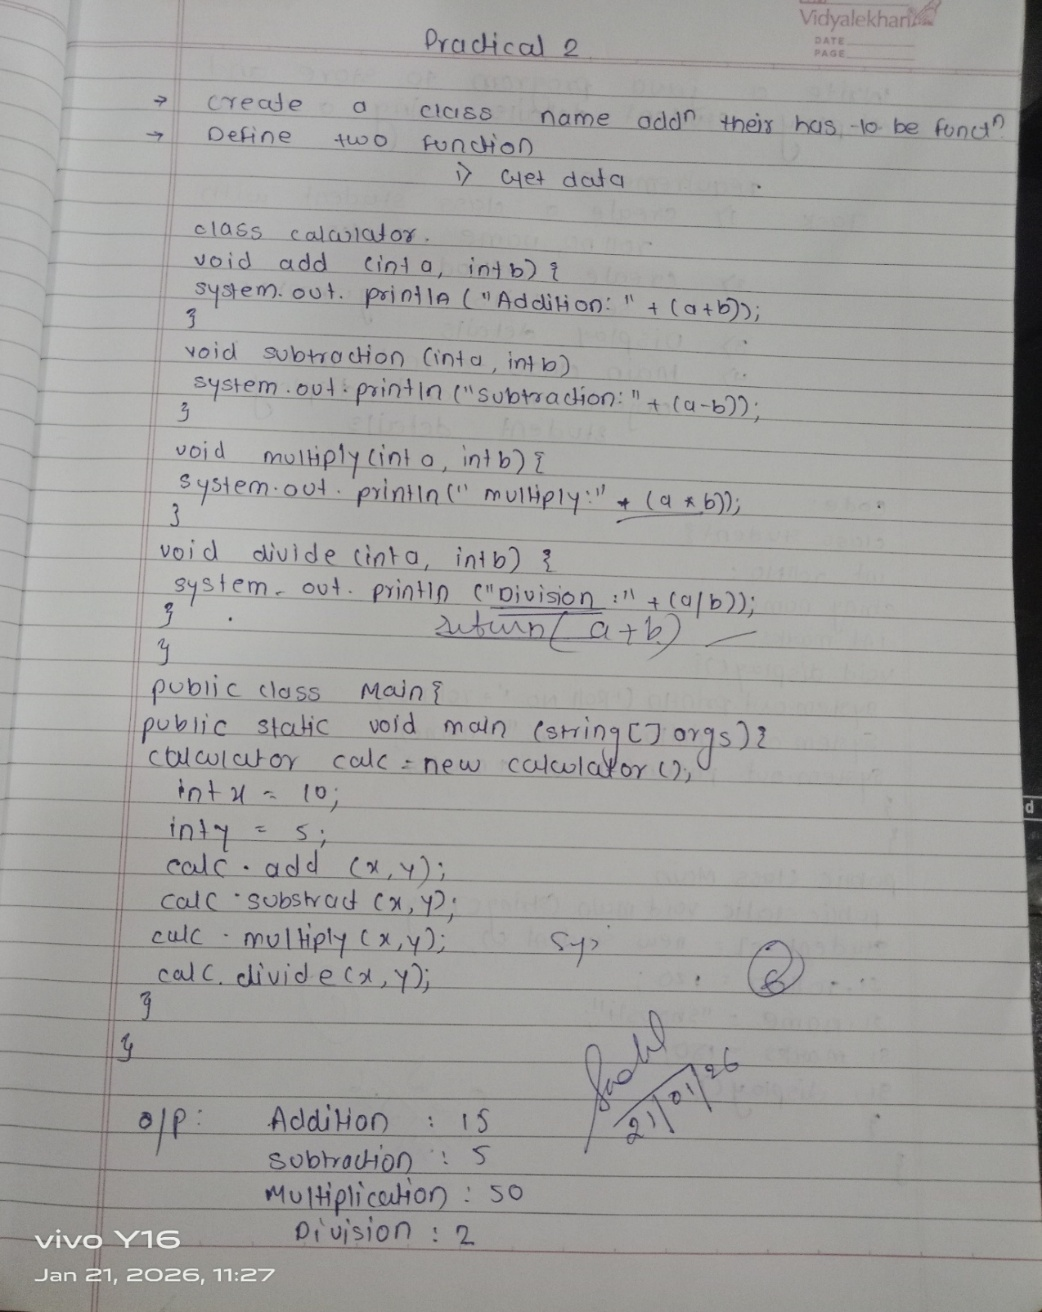 Vidyalekhan
DATE
PAGE
Practical 2
→ create a class name addⁿ their has to be functⁿ
→ Define two function
i) Get data
class calculator.
void add (int a, int b) {
system.out.println ("Addition:" + (a+b));
}
void subtraction (int a, int b)
system.out.println ("subtraction:" + (a-b));
}
void multiply (int a, int b) {
system.out.println (" multiply:" + (a * b));
}
void divide (int a, int b) {
system.out.println ("Division :" + (a/b));
}
return( a+b)
}
public class Main {
public static void main (string [] args) {
calculator calc = new calculator ();
int x = 10;
int y = 5;
calc.add (x,y);
calc.substract (x,y);
calc.multiply (x,y); Sy
calc.divide (x,y);
}
}
21/01/26
o/p: Addition : 15
subtraction : 5
Multiplication : 50
Division : 2
vivo Y16
Jan 21, 2026, 11:27